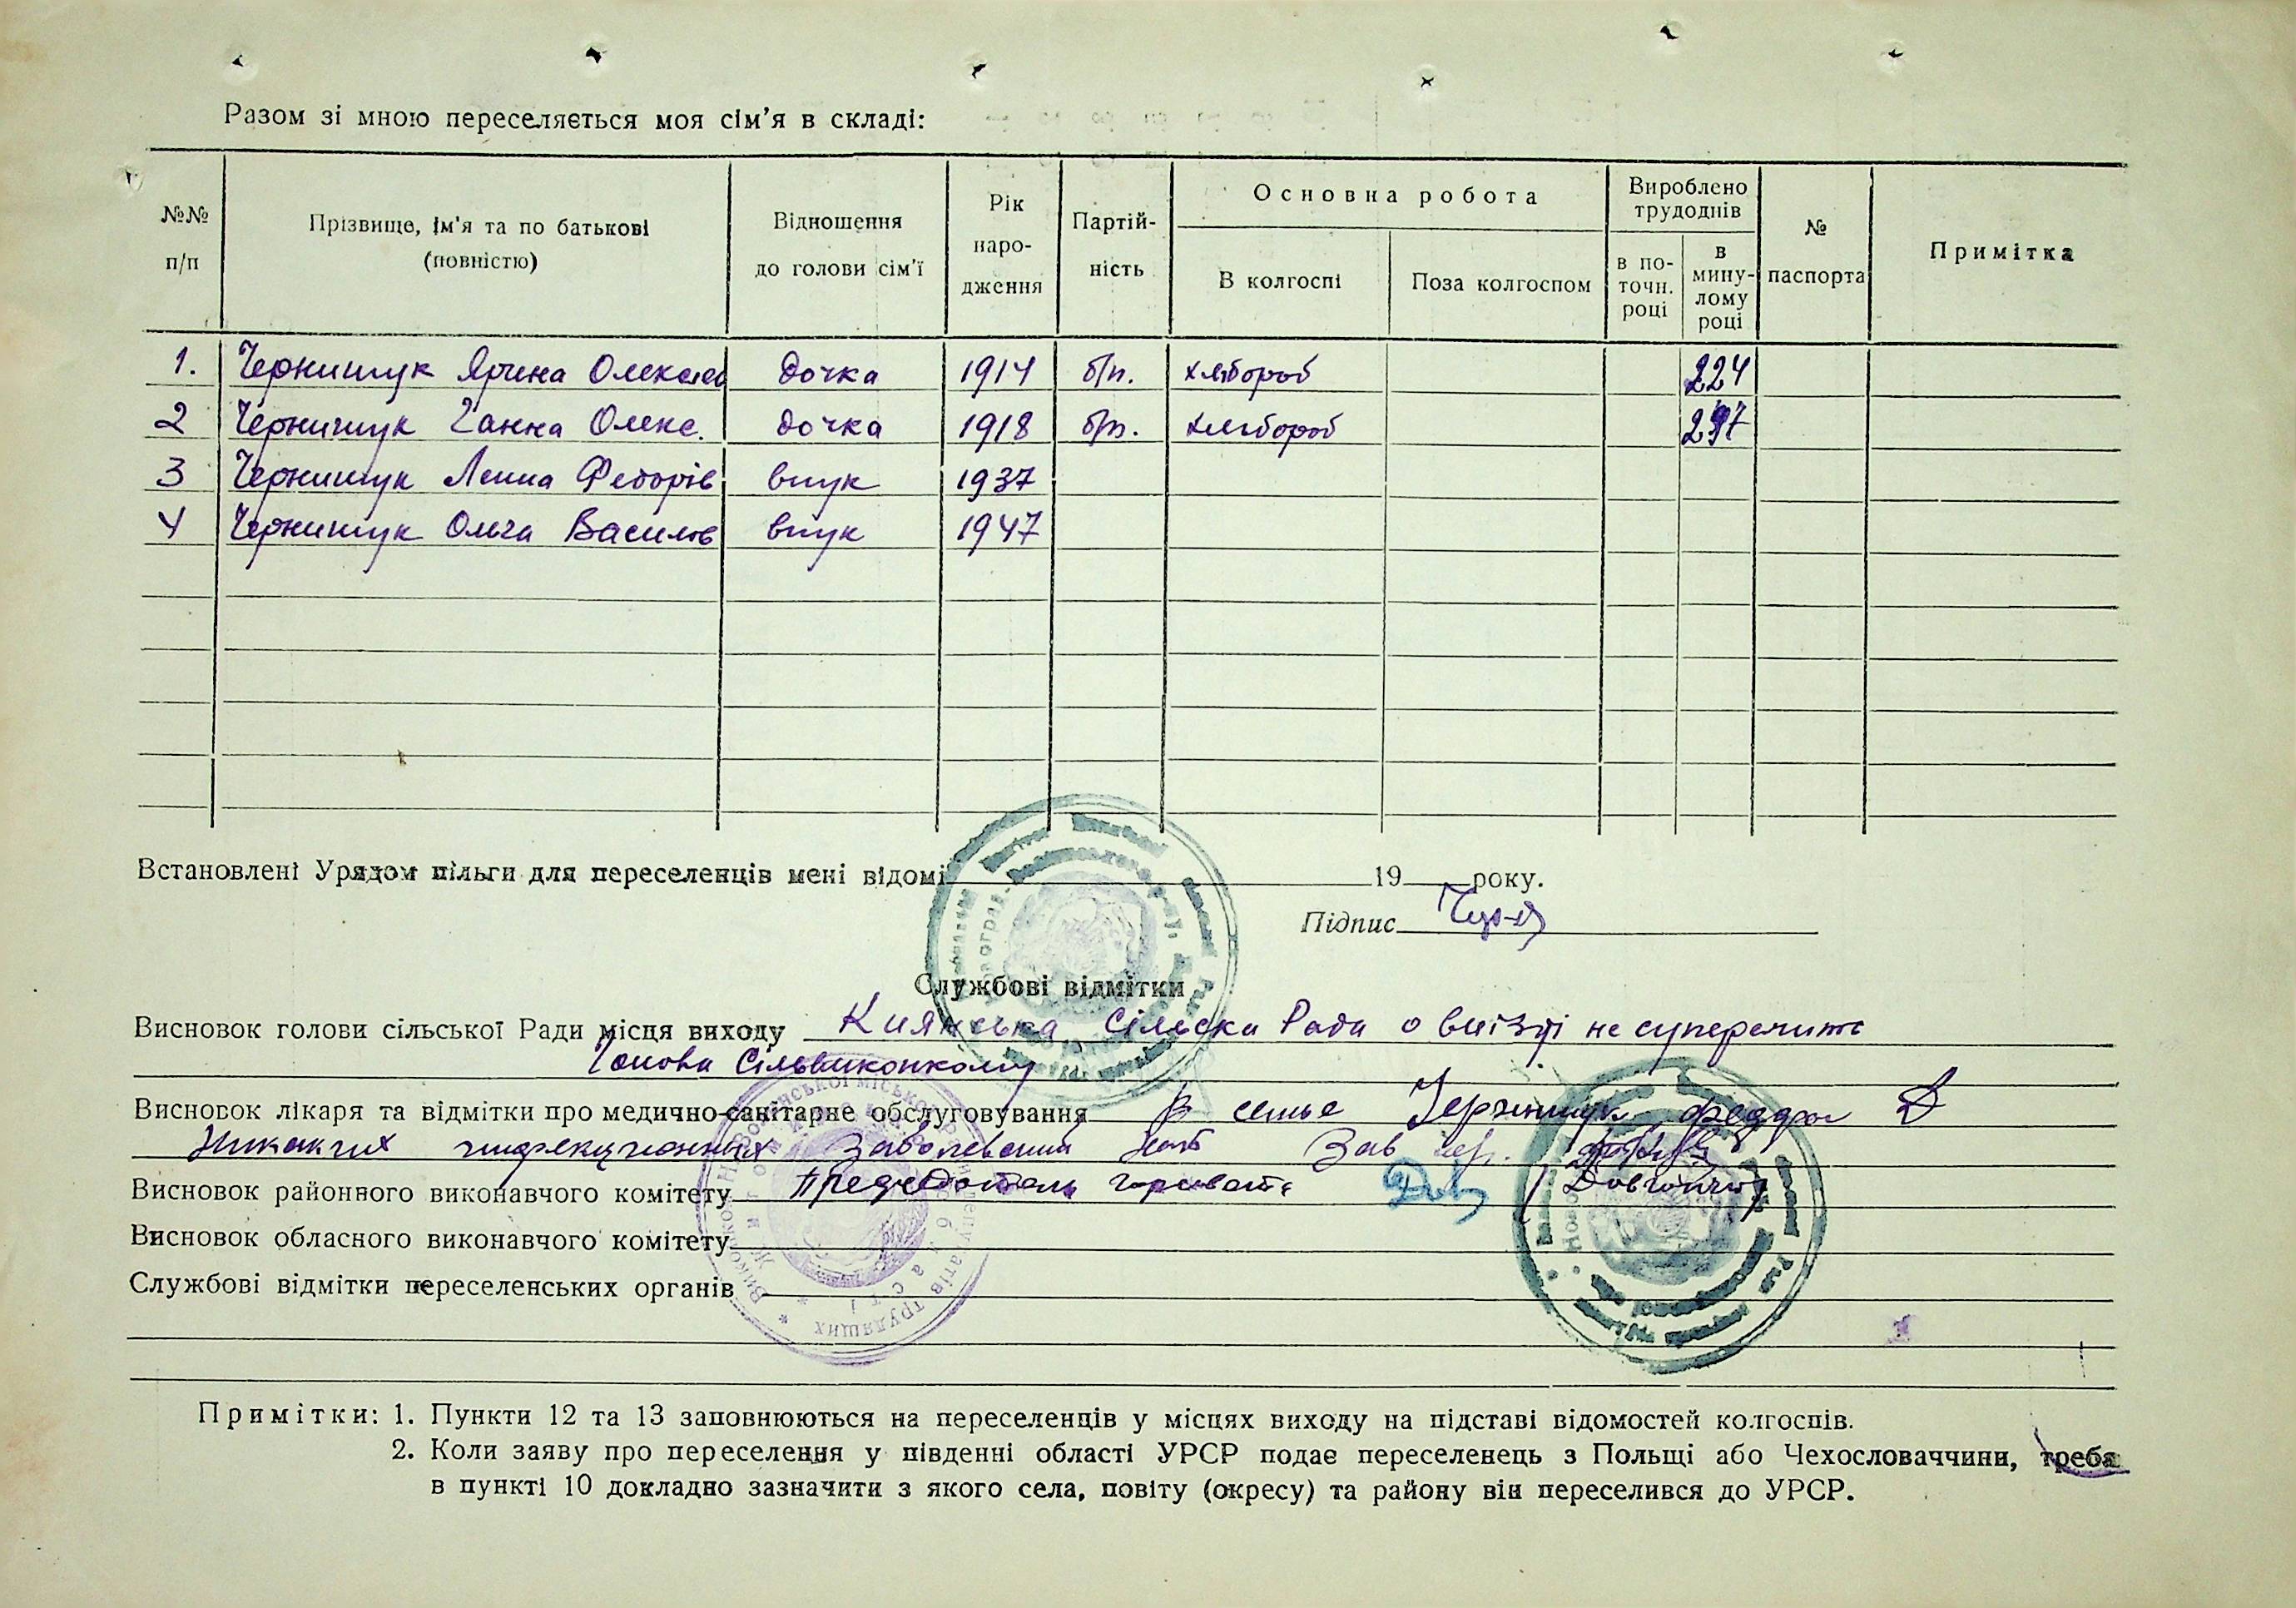 Разом зі мною переселяється моя сім'я в складі:
№№ п/п
Прізвище, ім'я та по батькові (повністю)
Відношення до голови сім'ї
Рік наро-дження
Партій-ність
Основна робота
В колгоспі
Поза колгоспом
Вироблено трудоднів
в по-точн. році
в мину-лому році
№ паспорта
Примітка
1. Чернишук Ярина Олексієв дочка 1914 б/п. хлібороб 224
2 Чернишук Ганна Олекс. дочка 1918 б/п. хлібороб
3 Чернишук Федорів внук 1937
4 Чернишук Ольга Василів внук 1947
Встановлені Урядом пільги для переселенців мені відомі 19 року.
Підпис
Службові відмітки
Висновок голови сільської Ради місця виходу Киянська Сільска Рада о виїзді не суперечить
Голова Сільвиконкому
Висновок лікаря та відмітки про медично-санітарне обслуговування В семье Чернишук
Никаких инфекционных заболеваний нет Зав
Висновок районного виконавчого комітету Председатель
Висновок обласного виконавчого комітету
Службові відмітки переселенських органів
Примітки: 1. Пункти 12 та 13 заповнюються на переселенців у місцях виходу на підставі відомостей колгоспів.
2. Коли заяву про переселення у південні області УРСР подає переселенець з Польщі або Чехословаччини, треба
в пункті 10 докладно зазначити з якого села, повіту (окресу) та району він переселився до УРСР.